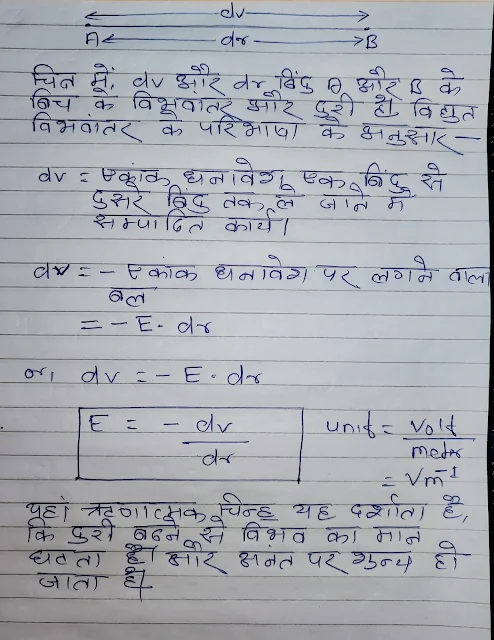 dv
A dr B
चित्र में, dv और dr बिंदु A और B के
बिच के विभवांतर और दुरी है, विद्युत
विभवांतर के परिभाषा के अनुसार —
dv = एकांक धनावेश एक बिंदु से
दुसर बिंदु तक ले जाने में
सम्पादित कार्य।
dv = - एकांक धनावेश पर लगने वाला
बल
= - E. dr
or, dv = - E. dr
E = - dv unit = Volt
dr meter
= Vm⁻¹
यहां ऋणात्मक चिन्ह यह दर्शाता है,
कि दुरी बढ़ने से विभव का मान
घटता है। और अनंत पर शुन्य हो
जाता है।